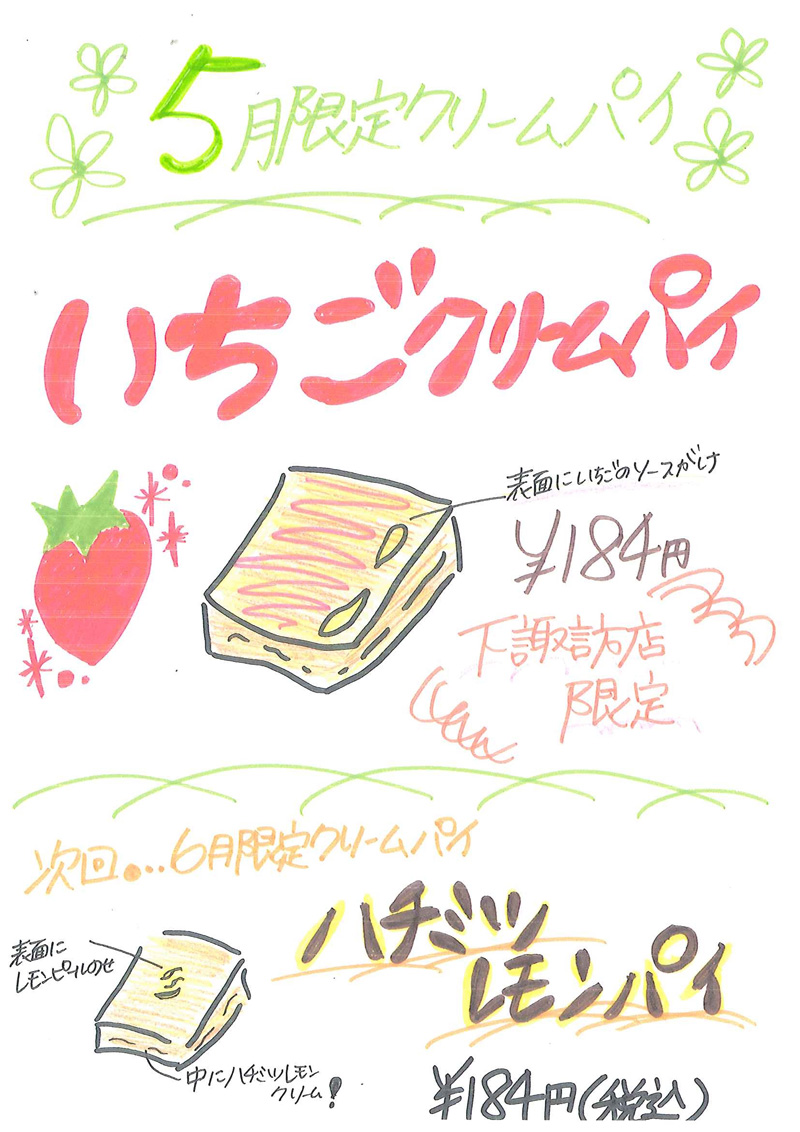 5月限定クリームパイ
いちごクリームパイ
表面にいちごのソースがけ
¥184円
下諏訪店
限定
次回●••6月限定クリームパイ
ハチミツ
レモンパイ
表面に
レモンピールのせ
中にハチミツレモン
クリーム!
¥184円(税込)